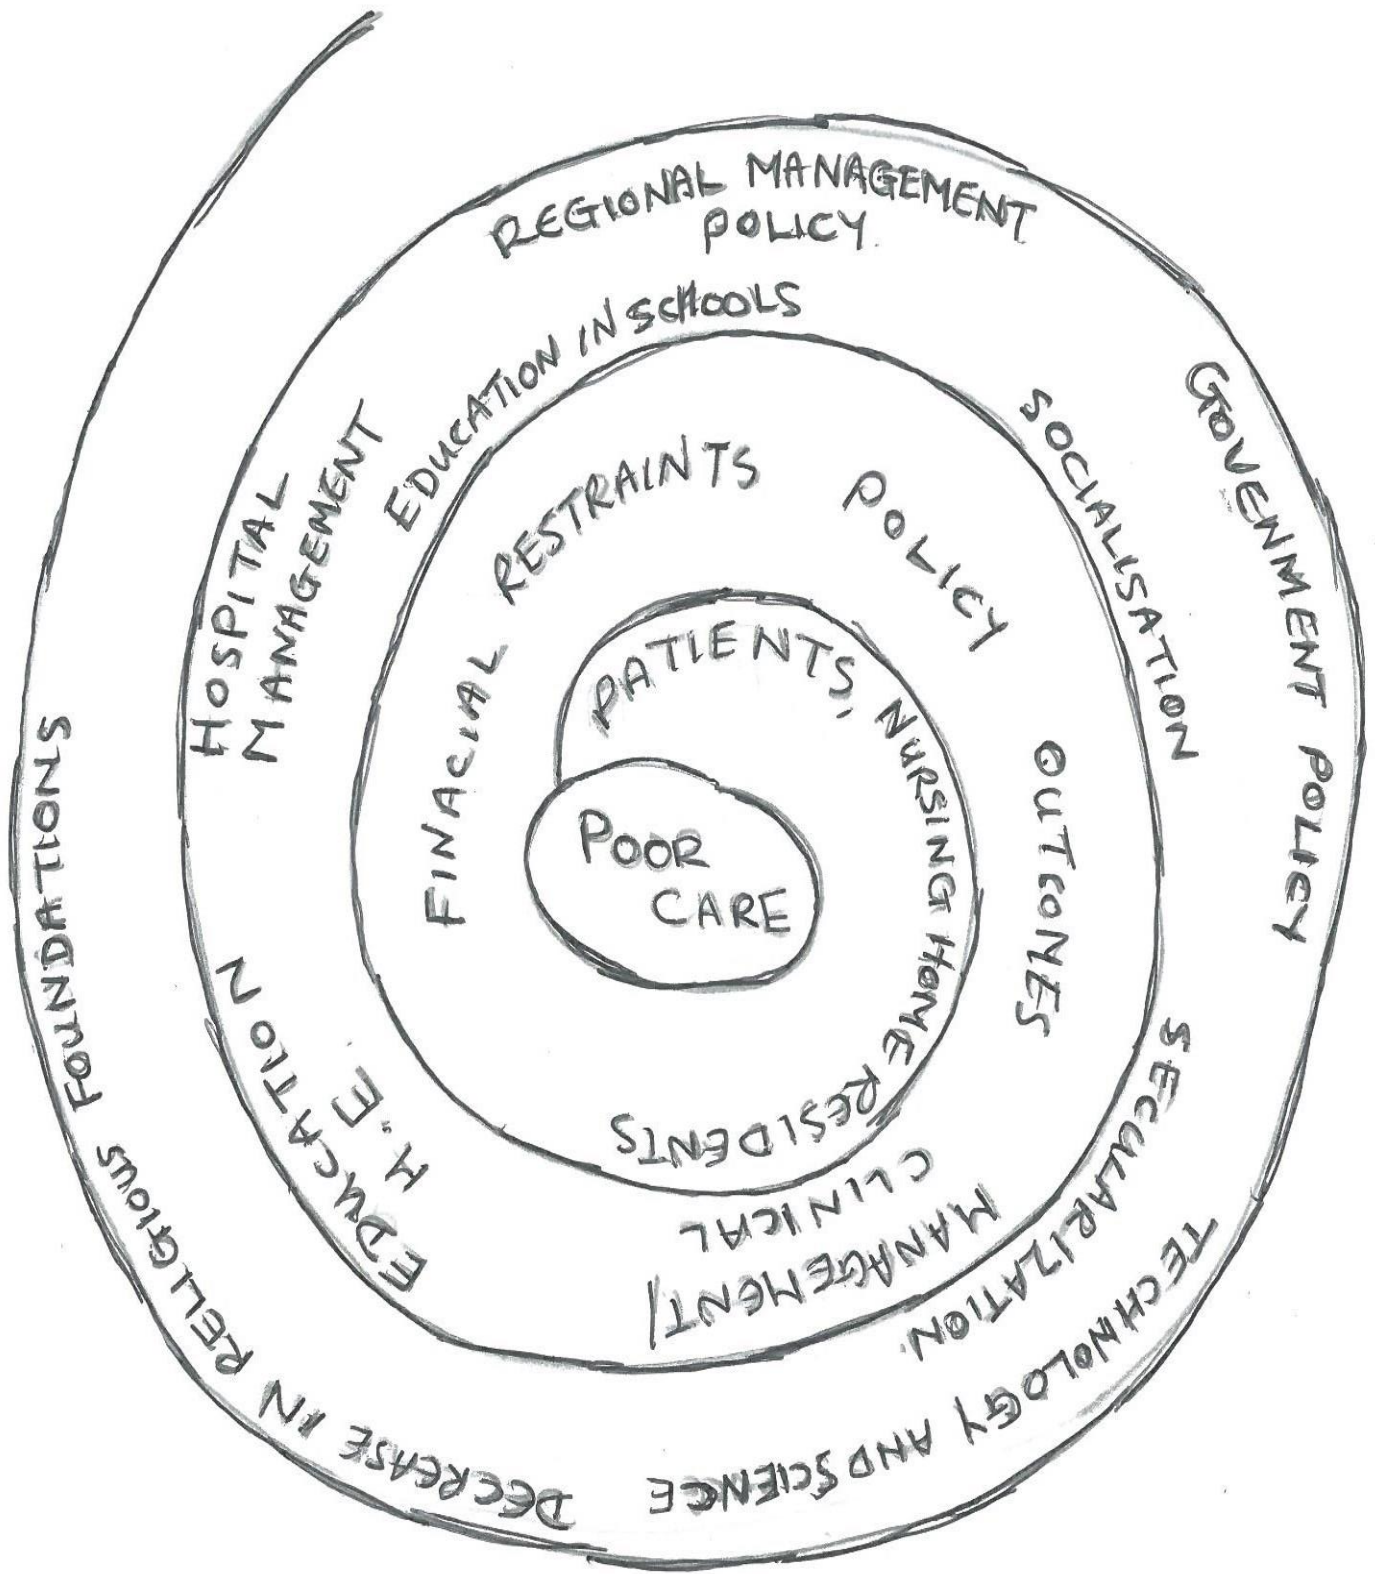 POOR
CARE
PATIENTS, NURSING HOME RESIDENTS
FINACIAL RESTRAINTS
POLICY
OUTCOMES
CLINICAL
MANAGEMENT/
EDUCATION
H.E
HOSPITAL
MANAGEMENT
EDUCATION IN SCHOOLS
REGIONAL MANAGEMENT
POLICY
SOCIALISATION
GOVENMENT POLICY
SECULARIZATION
TECHNOLOGY AND SCIENCE
DECREASE IN RELIGIOUS FOUNDATIONS